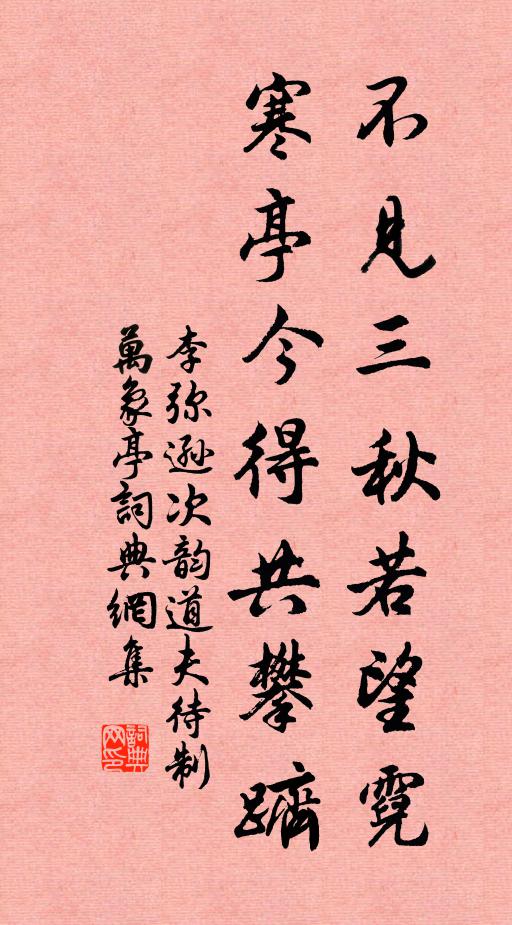 不見三秋若望霓
寒亭今得共攀躋
李弥遜次韵道夫待制
萬象亭詞典網集
詞典网印